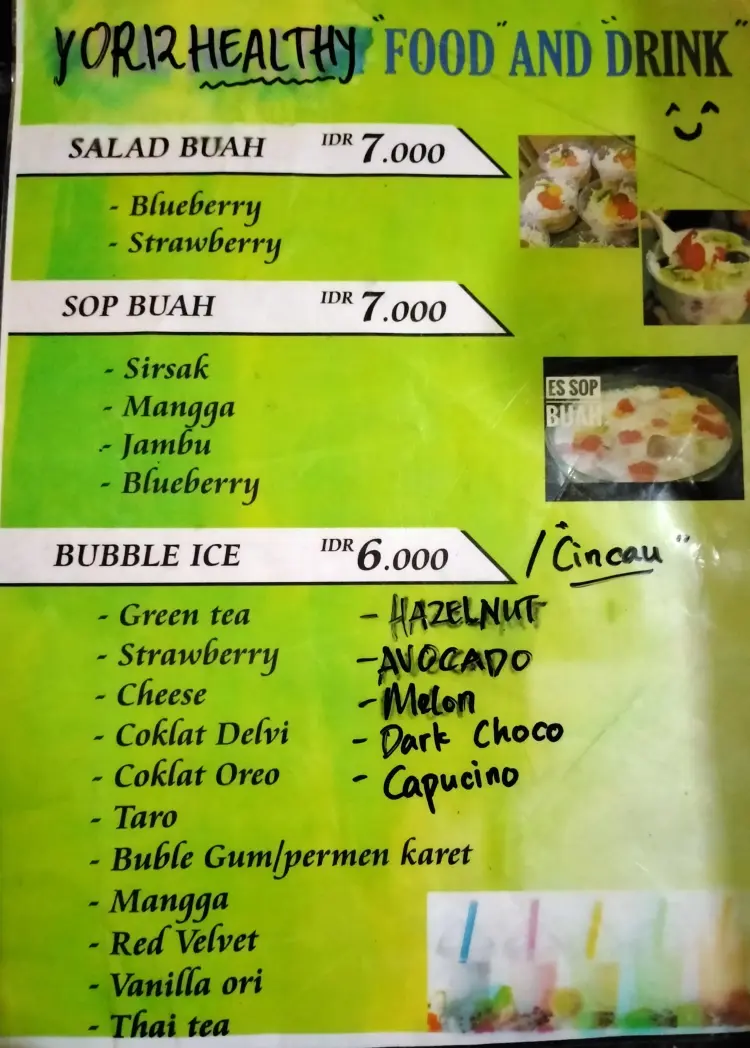 YORI2 HEALTHY "FOOD" AND DRINK"
SALAD BUAH IDR 7.000
- Blueberry
- Strawberry
SOP BUAH IDR 7.000
- Sirsak
- Mangga
- Jambu
- Blueberry
ES SOP
BUAH
BUBBLE ICE IDR 6.000 / "Cincau"
- Green tea
- Strawberry
- Cheese
- Coklat Delvi
- Coklat Oreo
- Taro
- Buble Gum/permen karet
- Mangga
- Red Velvet
- Vanilla ori
- Thai tea
- HAZELNUT
- AVOCADO
- Melon
- Dark Choco
- Capucino